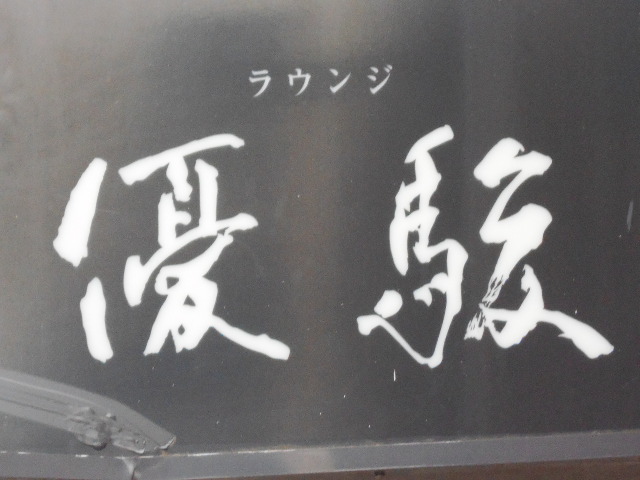 ラウンジ
優駿